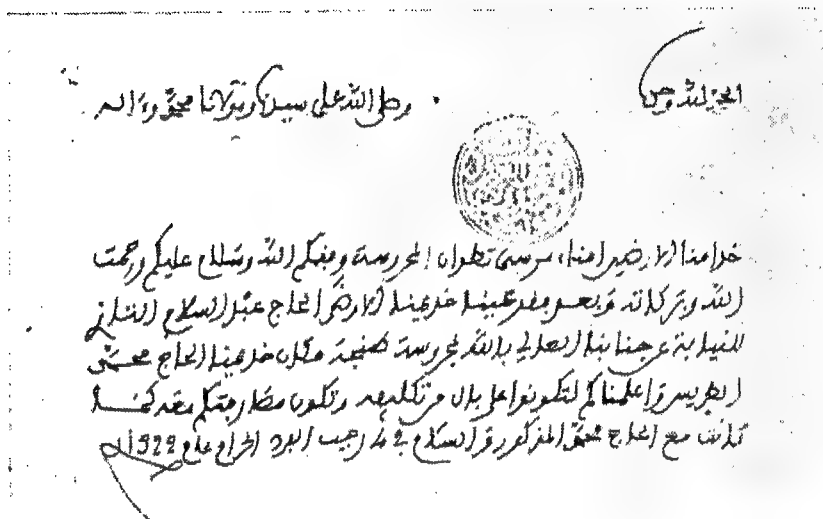 الحمد لله وحده
وصلى الله على سيدنا ومولانا محمد وءاله
خدامنا الارضين امناء مرسى تطوان المحروسة وفقكم الله وسلام عليكم ورحمت
الله وبركاته وبعد فقد عيننا خديمنا الارضى الحاج عبد السلام التازي
للنيابة عن جنابنا العالي بالله بمحروسة طنجة مكان خديمنا الحاج محمد
الطريس واعلمناكم لتكونوا على بال من تكليفه وتكون مخارجتكم معه كما
كانت مع الحاج محمد المذكور والسلام في 4 رجب الفرد الحرام عام 1329